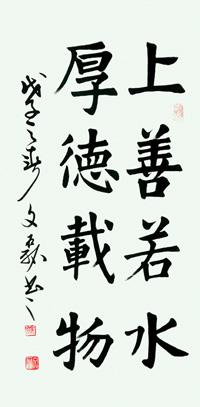 上善若水
厚德載物
戊子之春文毅书